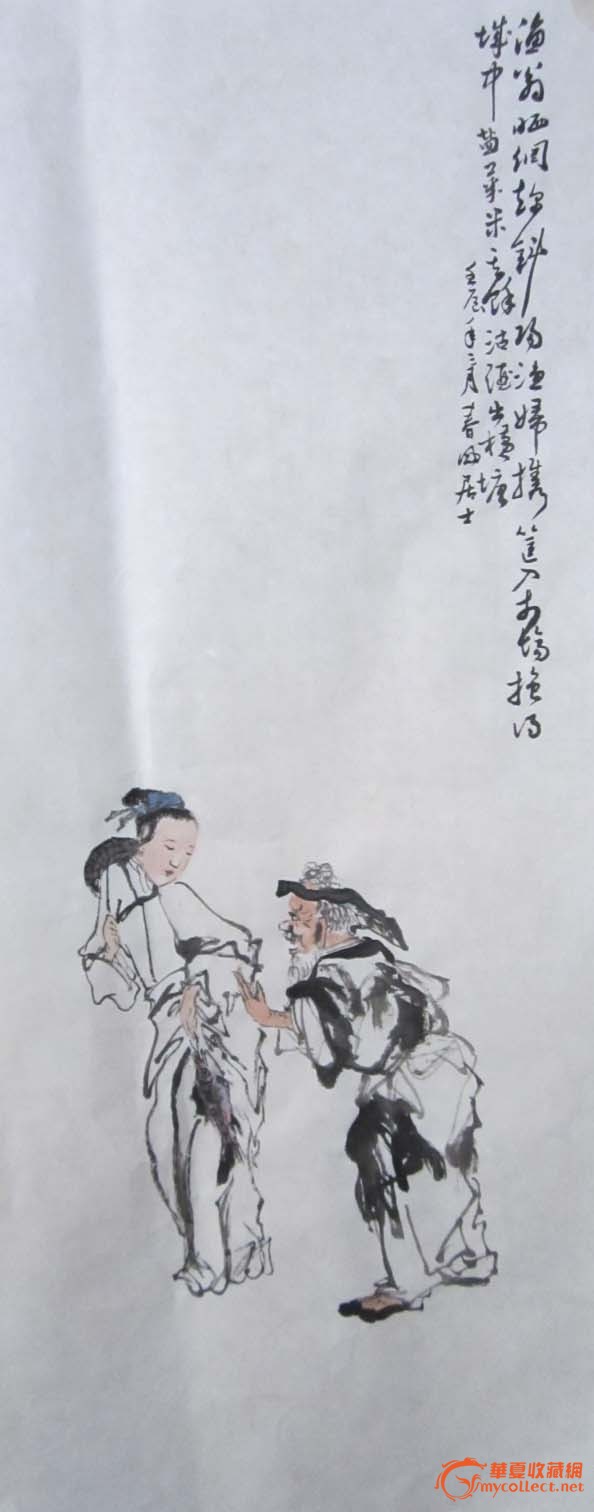 渔翁晒網趁斜陽渔婦携筐入市場換得
城中盐菜米其餘沽酒出橫塘
壬辰年二月春居士
華夏收藏網
mycollect.net